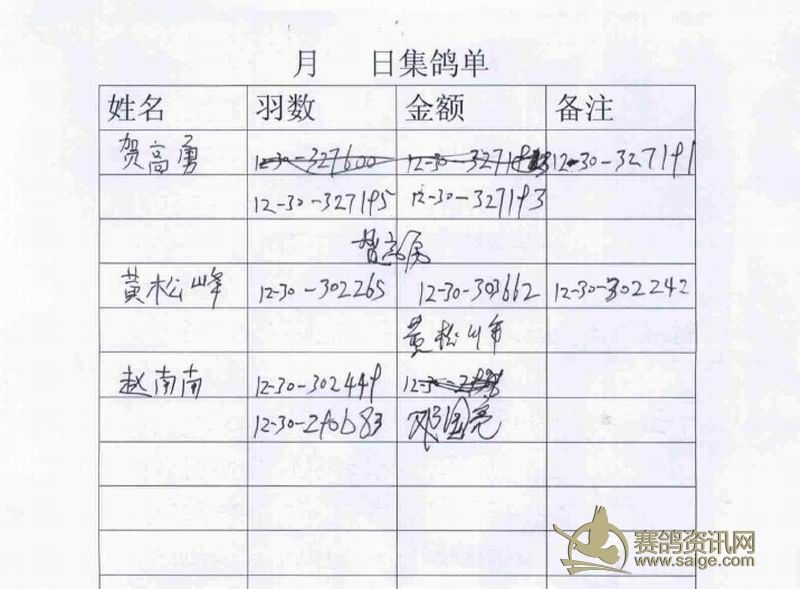 月 日集鸽单
姓名 羽数 金额 备注
贺高勇 12-30-327600 12-30-327191
12-30-327195 12-30-327193
黄松峰 12-30-302265 12-30-303662 12-30-302242
黄松峰
赵南南 12-30-302449
12-30-290683 邓国亮
赛鸽资讯网
www.saige.com